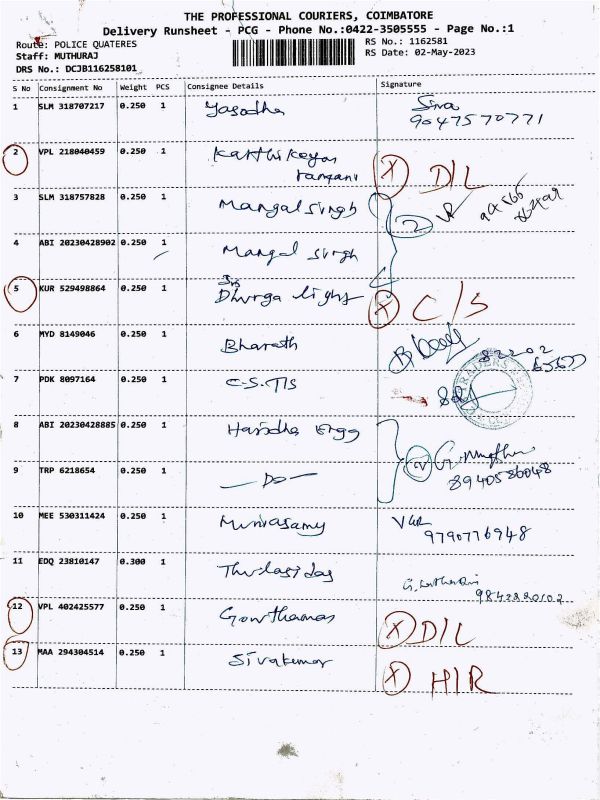 THE PROFESSIONAL COURIERS, COIMBATORE
Delivery Runsheet - PCG - Phone No.:0422-3505555 - Page No.:1
Route: POLICE QUATERES
RS No.: 1162581
Staff: MUTHURAJ
RS Date: 02-May-2023
DRS No.: DCJB116258101
S No Consignment No Weight PCS Consignee Details Signature
1 SLM 318707217 0.250 1 Yasodha Siva
9047570771
2 VPL 218040459 0.250 1 Karthikeyan X D/L
3 SLM 318757828 0.250 1 Mangal singh 2
4 ABI 20230428902 0.250 1 Mangal singh
5 KUR 529498864 0.250 1 Sri
Dhurga light X C/S
6 MYD 8149046 0.250 1 Bharath
82202
65677
7 PDK 8097164 0.250 1 C.S.TIS
8 ABI 20230428885 0.250 1 Harisdha Engg
8940586048
9 TRP 6218654 0.250 1 — Do —
10 MEE 530311424 0.250 1 Munirasamy
9790776948
11 EDQ 23810147 0.300 1 Thulasidas
9842220102
12 VPL 402425577 0.250 1 Gowthaman X D/L
13 MAA 294304514 0.250 1 Sivakumar X H/R